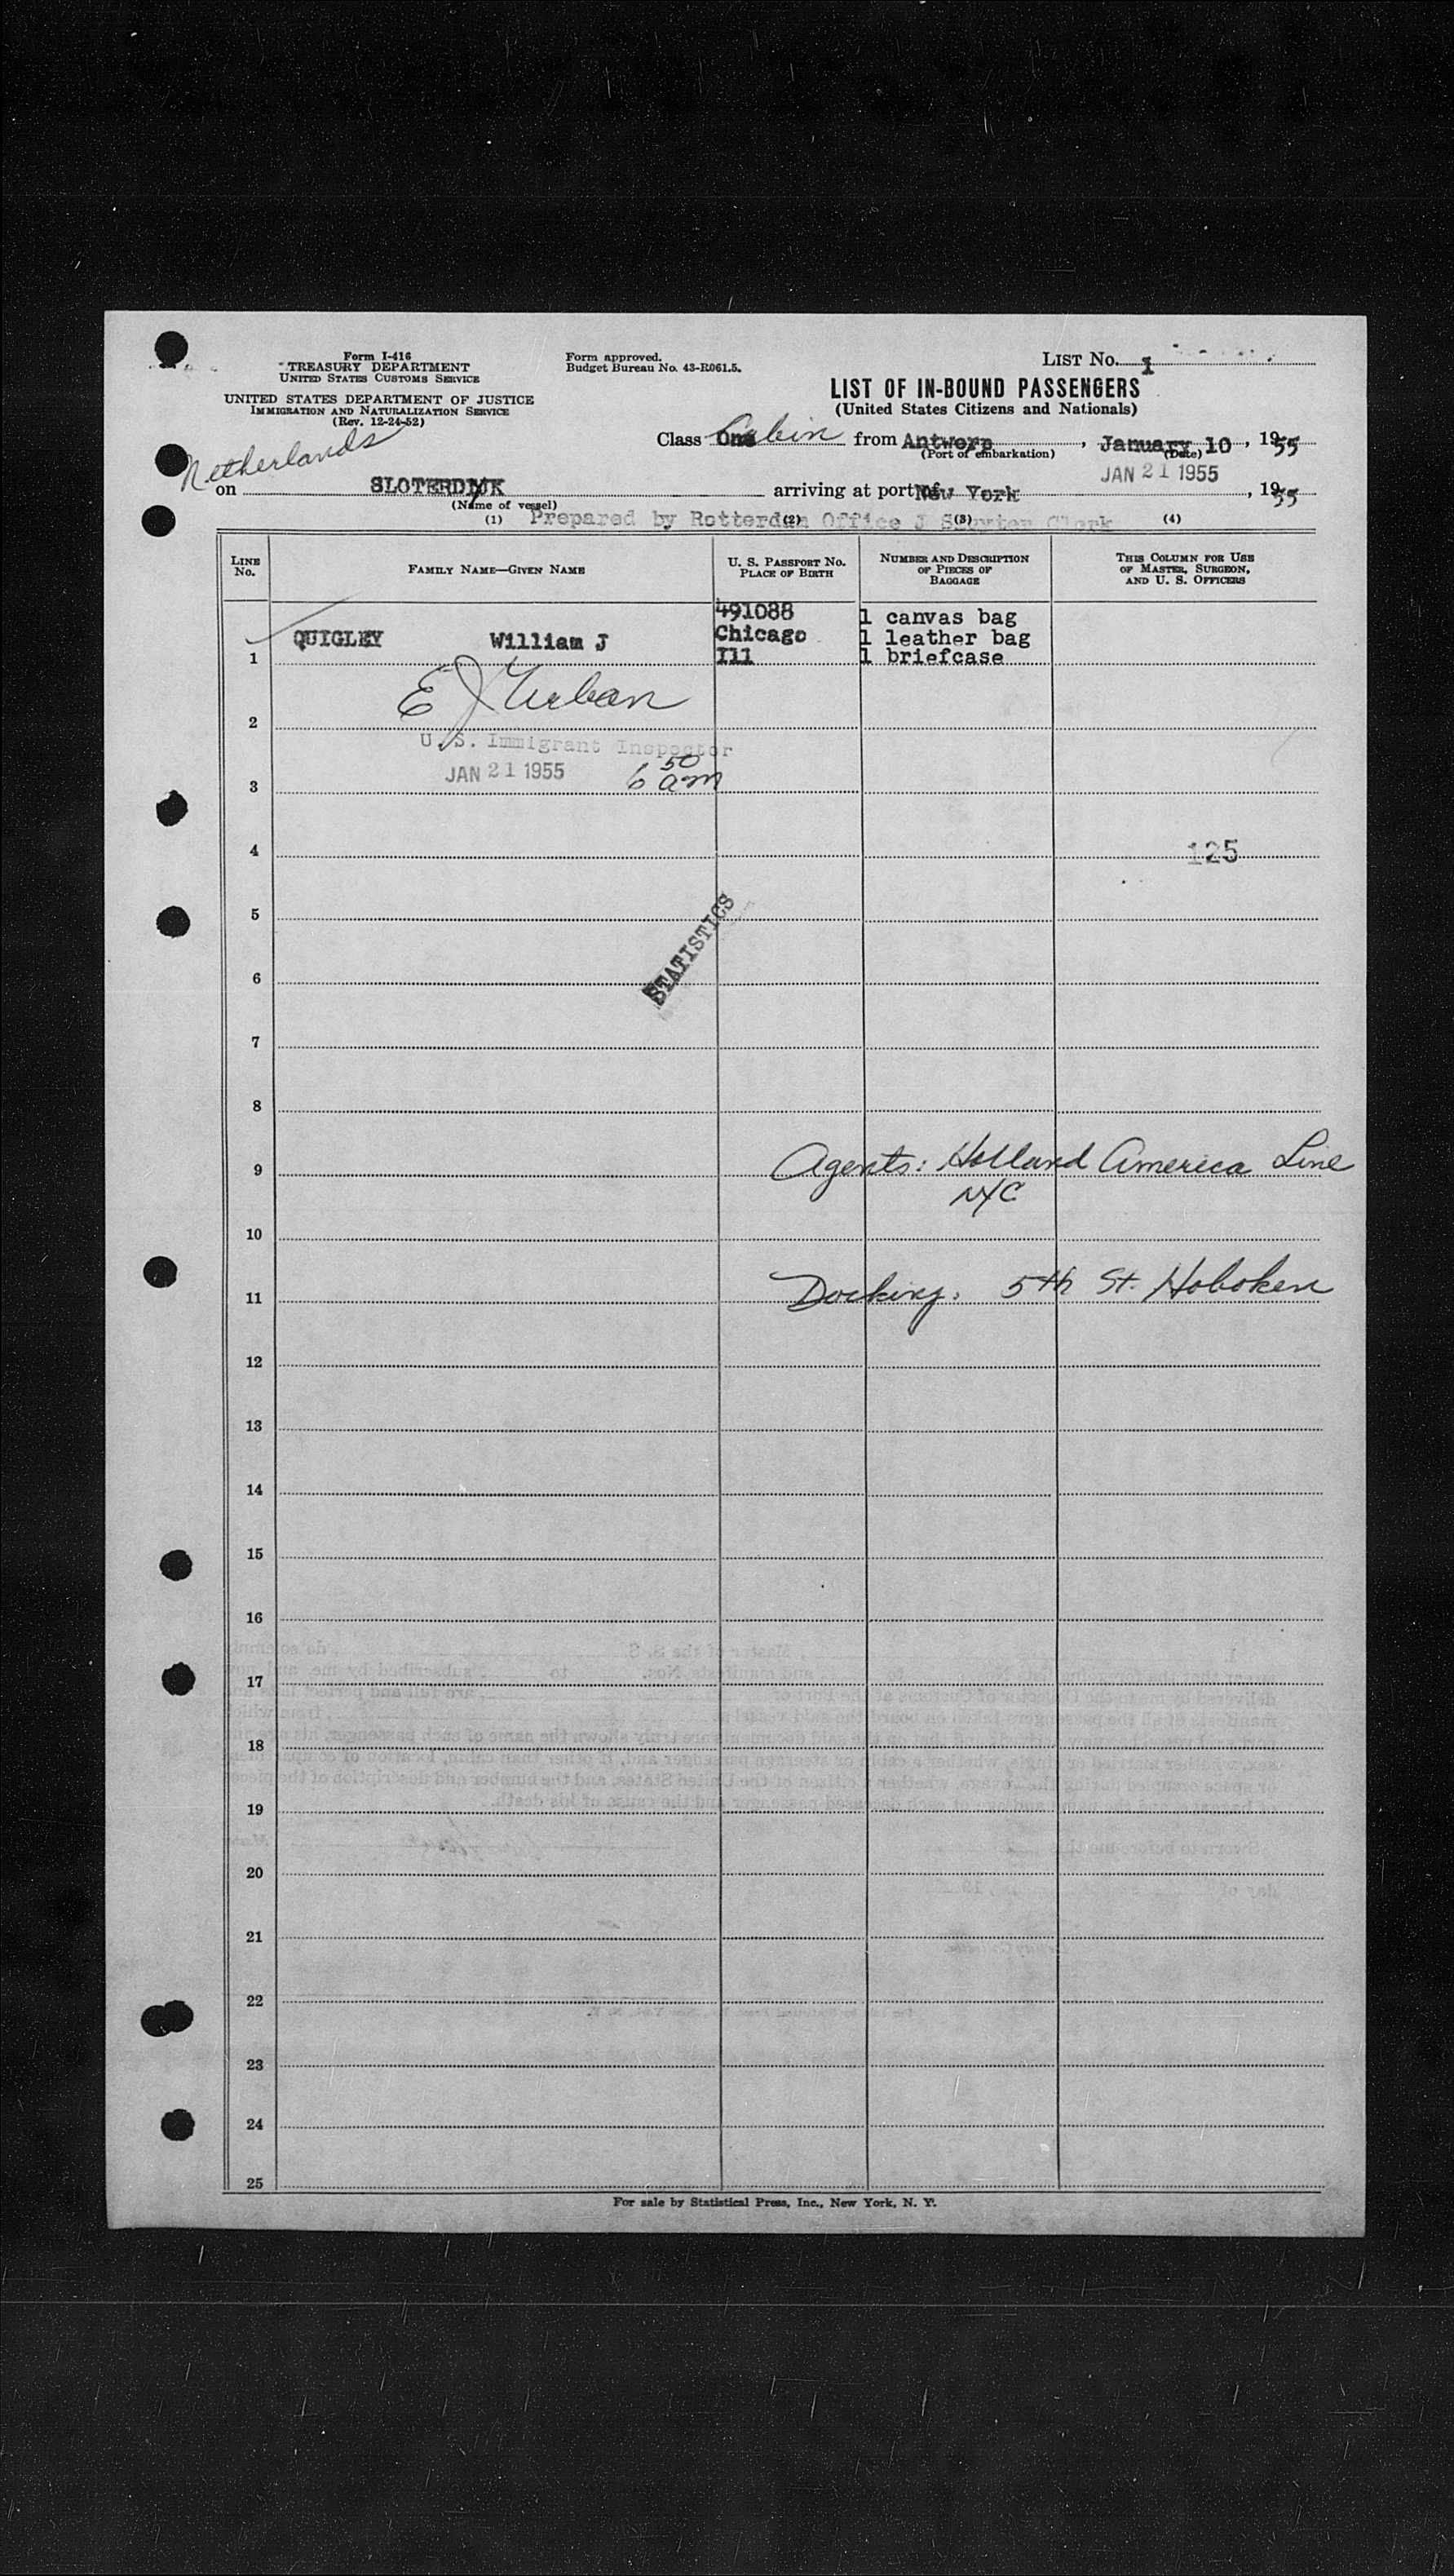 Form I-416
TREASURY DEPARTMENT
UNITED STATES CUSTOMS SERVICE
UNITED STATES DEPARTMENT OF JUSTICE
IMMIGRATION AND NATURALIZATION SERVICE
(Rev. 12-24-52)
Form approved.
Budget Bureau No. 43-R061.5.
LIST No. 1
LIST OF IN-BOUND PASSENGERS
(United States Citizens and Nationals)
Class One Cabin from Antwerp, January 10, 1955
(Port of embarkation) (Date)
Netherlands
JAN 21 1955
on SLOTERDYK arriving at port of New York, 1955
(Name of vessel)
(1) (2) (3) (4)
Prepared by Rotterdam Office J Clerk
LINE No.
FAMILY NAME—GIVEN NAME
U. S. PASSPORT NO. PLACE OF BIRTH
NUMBER AND DESCRIPTION OF PIECES OF BAGGAGE
THIS COLUMN FOR USE OF MASTER, SURGEON, AND U. S. OFFICERS
491088 1 canvas bag
QUIGLEY William J Chicago 1 leather bag
1 Ill 1 briefcase
E J Urban
2
U.S. Immigrant Inspector
JAN 21 1955 6 50 am
3
4 125
5
STATISTICS
6
7
8
9 Agents: Holland America Line
NYC
10
11 Docking: 5th St. Hoboken
12
13
14
15
16
17
18
19
20
21
22
23
24
25
For sale by Statistical Press, Inc., New York, N. Y.